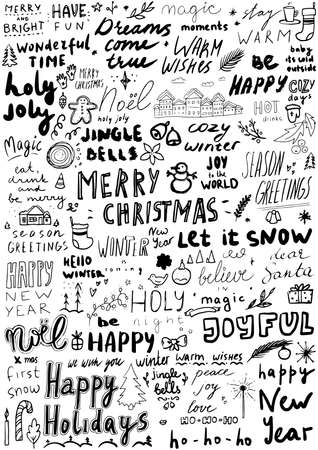 MERRY
AND
BRIGHT
HAVE
FUN
Dreams
come
true
magic
moments
stay
WARM
wonderful
TIME
WARM
wishes
baby
its cold
outside
be
HAPPY
COZY
DAYS
holy
joly
MERRY
CHRISTMAS
Noël
holy joly
HOT
drinks
JINGLE
BELLS
cozy
winter
Magic
eat,
drink
and
be merry
MERRY
CHRISTMAS
JOY
to the
WORLD
SEASON
GREETINGS
season
GREETINGS
WINTER
New
Year
Let it SNOW
HAPPY
NEW
YEAR
Hello
WINTER
believe
dear
Santa
HOLY
night
magic
JOYFUL
noël
be
HAPPY
xmas
first
snow
we wish you
Happy
Holidays
winter
warm wishes
jingle
bells
peace
joy
love
HO-HO-HO
ho-ho-ho
happy
New
Year